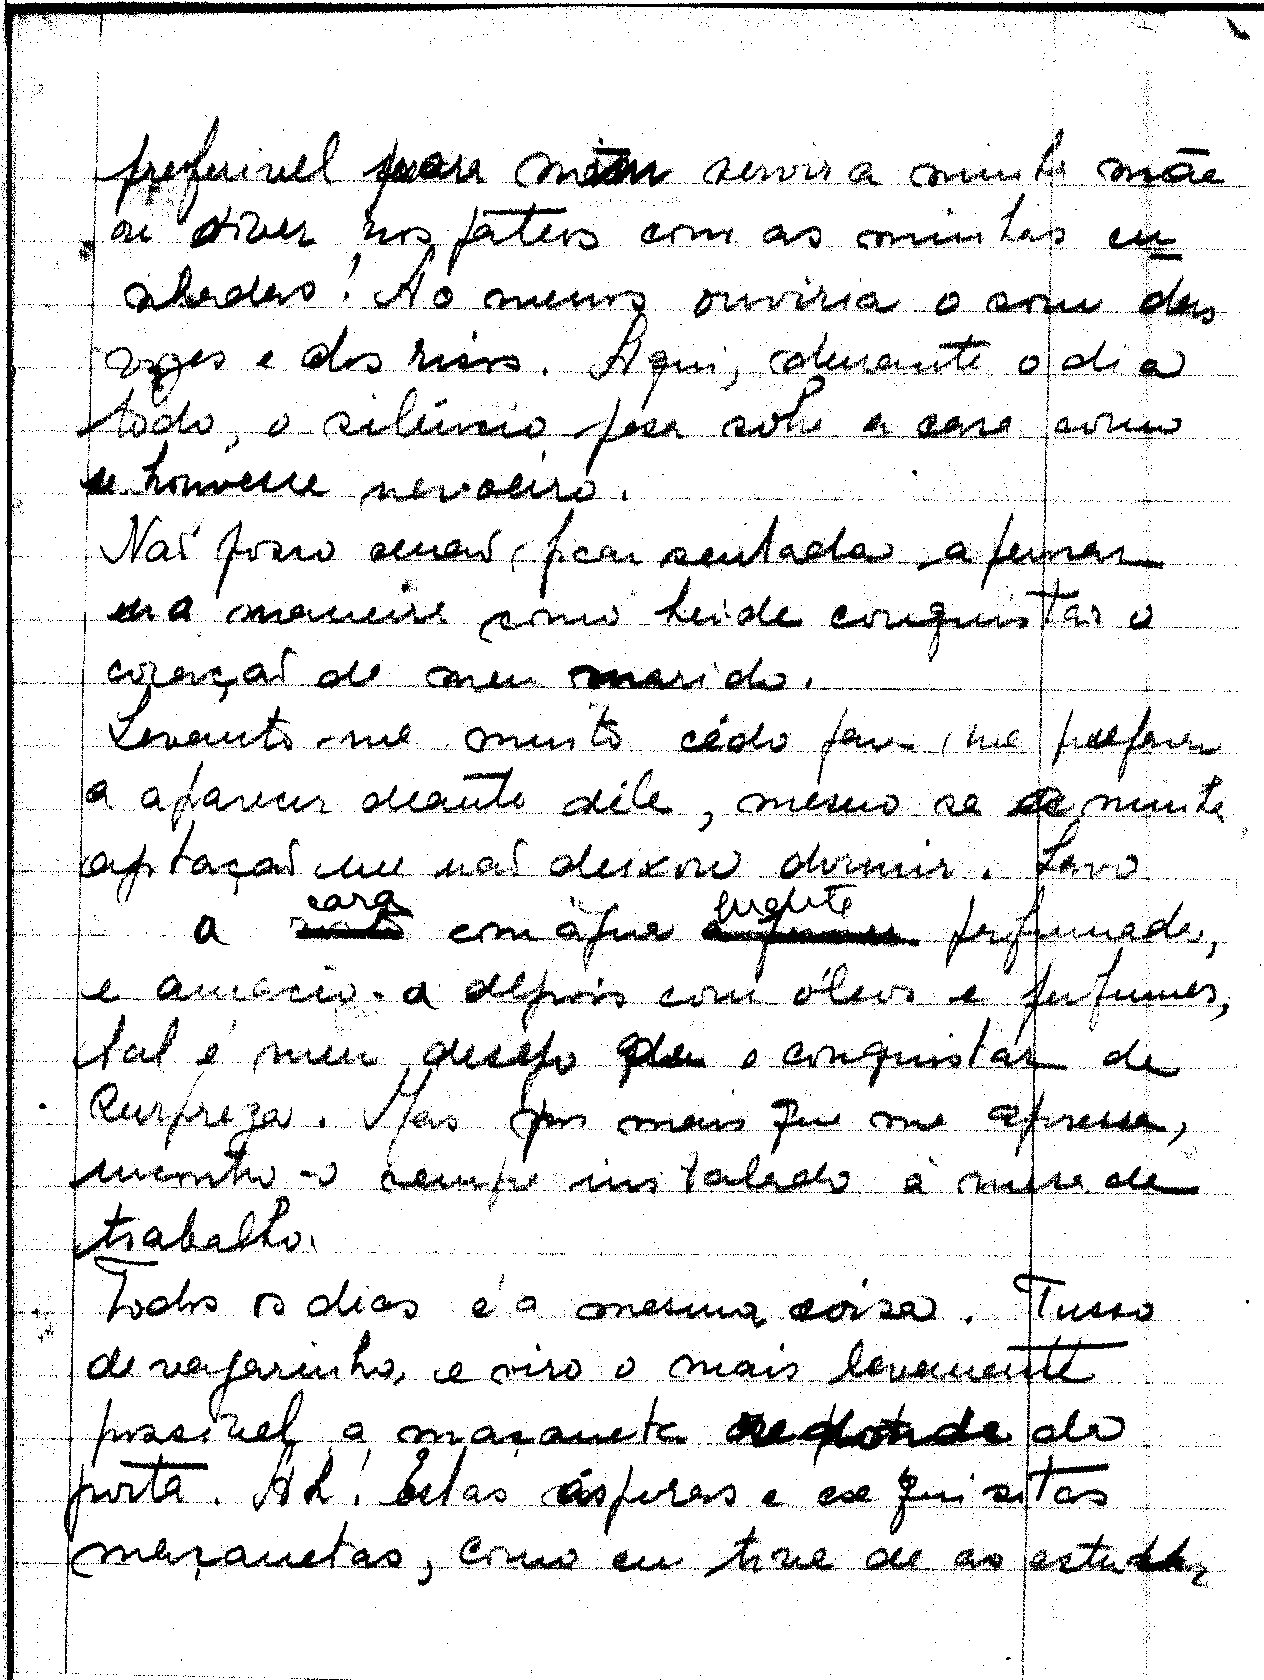 preferivel para mim servir a minha mãe
ou viver nos páteos com as minhas cu
nhadas! Ao menos ouviria o som das
vozes e dos risos. Aqui, durante o dia
todo, o silêncio pesa sobre a casa como
se houvesse nevoeiro.
Naõ posso senaõ, ficar sentada a pensar
na maneira como heide conquistar o
coraçaõ de meu marido.
Levanto-me muito cêdo para me preparar
a aparecer deante dêle, mesmo se a minha
agitaçaõ me naõ deixou dormir. Lavo
a cara com água quente perfumada,
e amacio-a depois com óleos e perfumes,
tal é meu desejo de o conquistar de
surpreza. Mas por mais que me apresse,
encontro-o sempre instalado á mesa de
trabalho.
Todos os dias é a mesma coisa. Tusso
devagarinho, e viro o mais levemente
possivel a maçaneta redonda da
porta. Ah! Estas ásperas e esquisitas
maçanetas, como eu tive de as